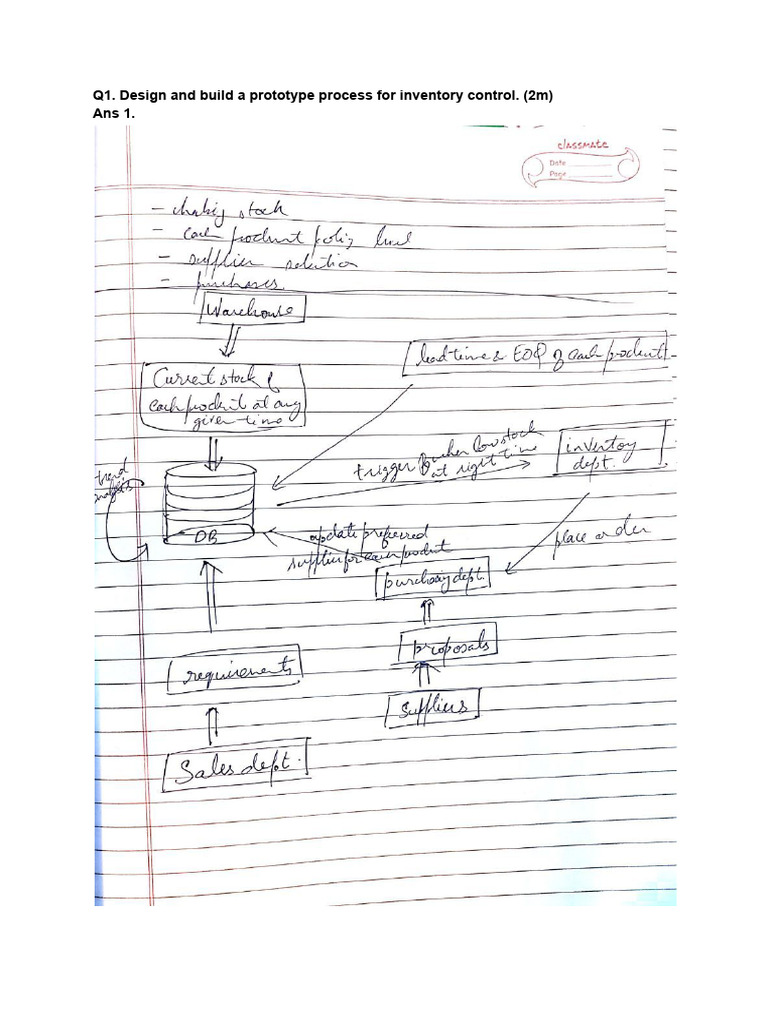 Q1. Design and build a prototype process for inventory control. (2m)
Ans 1.
classmate
Date
Page
- stock
- each product policy level
- supplier selection
- purchases
Warehouse
lead time & EOQ of each product
Current stock of
each product at any
given time
trigger when low stock
at right time
inventory
dept.
trend
analysis
DB
update preferred
supplier for each product
place order
purchasing dept.
proposals
requirements
suppliers
Sales dept.